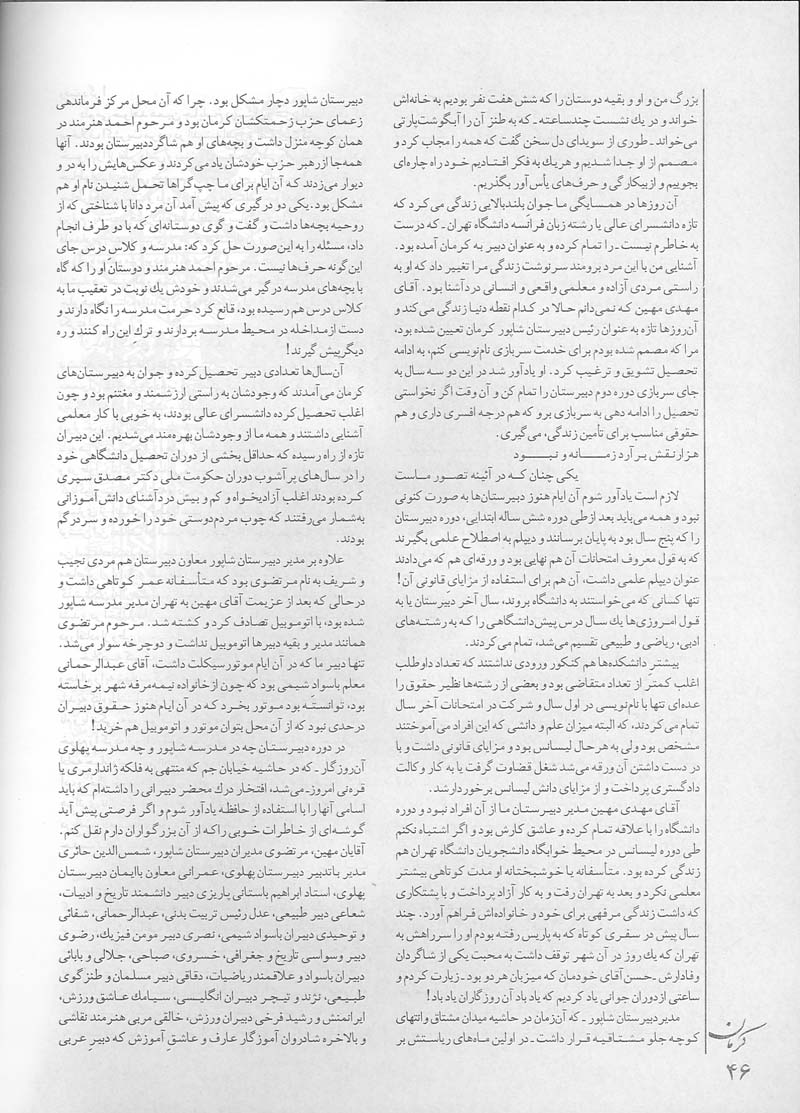 بزرگ من و او و بقیه دوستان را که شش هفت نفر بودیم به خانه‌اش
خواند و در یك نشست چندساعته ـ که به طنز آن را آبگوشت‌پارتی
می‌خواند ـ طوری از سویدای دل سخن گفت که همه را مجاب کرد و
مصمم از او جدا شدیم و هریك به فکر افتادیم خود راه چاره‌ای
بجوییم و ازبیکاری و حرف‌های یأس‌آور بگذریم.
آن روزها در همسایگی ما جوان بلندبالایی زندگی می‌کرد که
تازه دانشسرای عالی یا رشته زبان فرانسه دانشگاه تهران ـ که درست
به خاطرم نیست ـ را تمام کرده و به عنوان دبیر به کرمان آمده بود.
آشنایی من با این مرد برومند سرنوشت زندگی مرا تغییر داد که او به
راستی مردی آزاده و معلمی واقعی و انسانی دردآشنا بود. آقای
مهدی مهین که نمی‌دانم حالا در کدام نقطه دنیا زندگی می‌کند و
آن‌روزها تازه به عنوان رئیس دبیرستان شاپور کرمان تعیین شده بود،
مرا که مصمم شده بودم برای خدمت سربازی نام‌نویسی کنم، به ادامه
تحصیل تشویق و ترغیب کرد. او یادآور شد در این دو سه سال به
جای سربازی دوره دوم دبیرستان را تمام کن و آن وقت اگر نخواستی
تحصیل را ادامه دهی به سربازی برو که هم درجه افسری داری و هم
حقوقی مناسب برای تأمین زندگی، می‌گیری.
هزار نقش بر آرد زمانه و نبود
یکی چنان که در آئینه تصور ماست
لازم است یادآور شوم آن ایام هنوز دبیرستان‌ها به صورت کنونی
نبود و همه می‌باید بعد ازطی دوره شش ساله ابتدایی، دوره دبیرستان
را که پنج سال بود به پایان برسانند و دیپلم به اصطلاح علمی بگیرند
که به قول معروف امتحانات آن هم نهایی بود و ورقه‌ای هم که می‌دادند
عنوان دیپلم علمی داشت، آن هم برای استفاده از مزایایِ قانونی آن!
تنها کسانی که می‌خواستند به دانشگاه بروند، سال آخر دبیرستان یا به
قول امروزی‌ها یك سال درس پیش‌دانشگاهی را که به رشته‌های
ادبی، ریاضی و طبیعی تقسیم می‌شد، تمام می‌کردند.
بیشترِ دانشکده‌ها هم کنکور ورودی نداشتند که تعداد داوطلب
اغلب کمتر از تعداد متقاضی بود و بعضی از رشته‌ها نظیر حقوق را
عده‌ای تنها با نام‌نویسی در اول سال و شرکت در امتحانات آخر سال
تمام می‌کردند، که البته میزان علم و دانشی که این افراد می‌آموختند
مشخص بود ولی به هر حال لیسانس بود و مزایای قانونی داشت و با
در دست داشتن آن ورقه می‌شد شغل قضاوت گرفت یا به کار وکالت
دادگستری پرداخت و از مزایای دانش لیسانس برخوردار شد.
آقای مهدی مهین مدیر دبیرستان ما از آن افراد نبود و دوره
دانشگاه را با علاقه تمام کرده و عاشق کارش بود و اگر اشتباه نکنم
طی دوره لیسانس در محیط خوابگاه دانشجویان دانشگاه تهران هم
زندگی کرده بود. متأسفانه یا خوشبختانه او مدت کوتاهی بیشتر
معلمی نکرد و بعد به تهران رفت و به کار آزاد پرداخت و با پشتکاری
که داشت زندگی مرفهی برای خود و خانواده‌اش فراهم آورد. چند
سال پیش در سفری کوتاه که به پاریس رفته بودم او را سرراهش به
تهران که یك روز در آن شهر توقف داشت به محبت یکی از شاگردان
وفادارش ـ حسن‌آقای خودمان که میزبان هر دو بود ـ زیارت کردم و
ساعتی ازدوران جوانی یاد کردیم که یاد باد آن روزگاران یاد باد!
مدیر دبیرستان شاپور ـ که آن‌زمان در حاشیه میدان مشتاق و انتهای
کوچه جلو مشتاقیه قرار داشت ـ در اولین ماه‌های ریاستش بر
دبیرستان شاپور دچار مشکل بود. چرا که آن محل مرکز فرماندهی
زعمای حزب زحمتکشان کرمان بود و مرحوم احمد هنرمند در
همان کوچه منزل داشت و بچه‌های او هم شاگرد دبیرستان بودند. آنها
همه‌جا از رهبر حزب خودشان یاد می‌کردند و عکس‌هایش را به در و
دیوار می‌زدند که آن ایام برای ما چپ‌گراها تحمل شنیدن نام او هم
مشکل بود. یکی دو درگیری که پیش آمد آن مرد دانا با شناختی که از
روحیه بچه‌ها داشت و گفت و گوی دوستانه‌ای که با دو طرف انجام
داد، مسئله را به این‌صورت حل کرد که: مدرسه و کلاس درس جای
این‌گونه حرف‌ها نیست. مرحوم احمد هنرمند و دوستانِ او را که گاه
با بچه‌های مدرسه درگیر می‌شدند و خودش یك نوبت در تعقیب ما به
کلاس درس هم رسیده بود، قانع کرد حرمت مدرسه را نگاه دارند و
دست از مداخله در محیط مدرسه بردارند و ترك این راه کنند و ره
دیگر پیش گیرند!
آن‌سال‌ها تعدادی دبیر تحصیل کرده و جوان به دبیرستان‌های
کرمان می‌آمدند که وجودشان به راستی ارزشمند و مغتنم بود و چون
اغلب تحصیل کرده دانشسرای عالی بودند، به خوبی با کار معلمی
آشنایی داشتند و همه ما از وجودشان بهره‌مند می‌شدیم. این دبیران
تازه از راه رسیده که حداقل بخشی از دوران تحصیل دانشگاهی خود
را در سال‌های پرآشوب دوران حکومت ملی دکتر مصدق سپری
کرده بودند اغلب آزادیخواه و کم و بیش دردآشنای دانش‌آموزانی
به‌شمار می‌رفتند که چوب مردم‌دوستی خود را خورده و سر درگم
بودند.
علاوه بر مدیر دبیرستان شاپور معاون دبیرستان هم مردی نجیب
و شریف به نام مرتضوی بود که متأسفانه عمر کوتاهی داشت و
درحالی که بعد از عزیمت آقای مهین به تهران مدیر مدرسه شاپور
شده بود، با اتوموبیل تصادف کرد و کشته شد. مرحوم مرتضوی
همانند مدیر و بقیه دبیرها اتوموبیل نداشت و دوچرخه سوار می‌شد.
تنها دبیر ما که در آن ایام موتورسیکلت داشت، آقای عبدالرحمانی
معلم باسواد شیمی بود که چون ازخانواده نیمه‌مرفه شهر برخاسته
بود، توانسته بود موتور بخرد که در آن ایام هنوز حقوق دبیران
درحدی نبود که از آن محل بتوان موتور و اتوموبیل هم خرید!
در دوره دبیرستان چه در مدرسه شاپور و چه مدرسه پهلوی
آن‌روزگار ـ که در حاشیه خیابان جم که منتهی به فلکه ژاندارمری یا
قره‌نی امروز ـ می‌شد، افتخار درك محضر دبیرانی را داشته‌ام که باید
اسامی آنها را با استفاده از حافظه یادآور شوم و اگر فرصتی پیش آید
گوشه‌ای از خاطرات خوبی را که از آن بزرگواران دارم نقل کنم.
آقایان مهین، مرتضوی مدیران دبیرستان شاپور، شمس‌الدین حائری
مدیر باتدبیر دبیرستان پهلوی، عمرانی معاون باایمان دبیرستان
پهلوی، استاد ابراهیم باستانی پاریزی دبیر دانشمند تاریخ و ادبیات،
شعاعی دبیر طبیعی، عدل رئیس تربیت بدنی، عبدالرحمانی، شفائی
و توحیدی دبیران باسواد شیمی، نصری دبیر مومن فیزیك، رضوی
دبیر وسواسی تاریخ و جغرافی، خسروی، صباحی، جلالی و بابائی
دبیران باسواد و علاقمند ریاضیات، دقاقی دبیر مسلمان و طنزگوی
طبیعی، نژند و تیچر دبیران انگلیسی، سیامك عاشق ورزش،
ایرانمنش و رشید فرخی دبیران ورزش، خالقی مربی هنرمند نقاشی
و بالاخره شادروان آموزگار عارف و عاشقِ آموزش که دبیر عربی
کرمان
۴۶